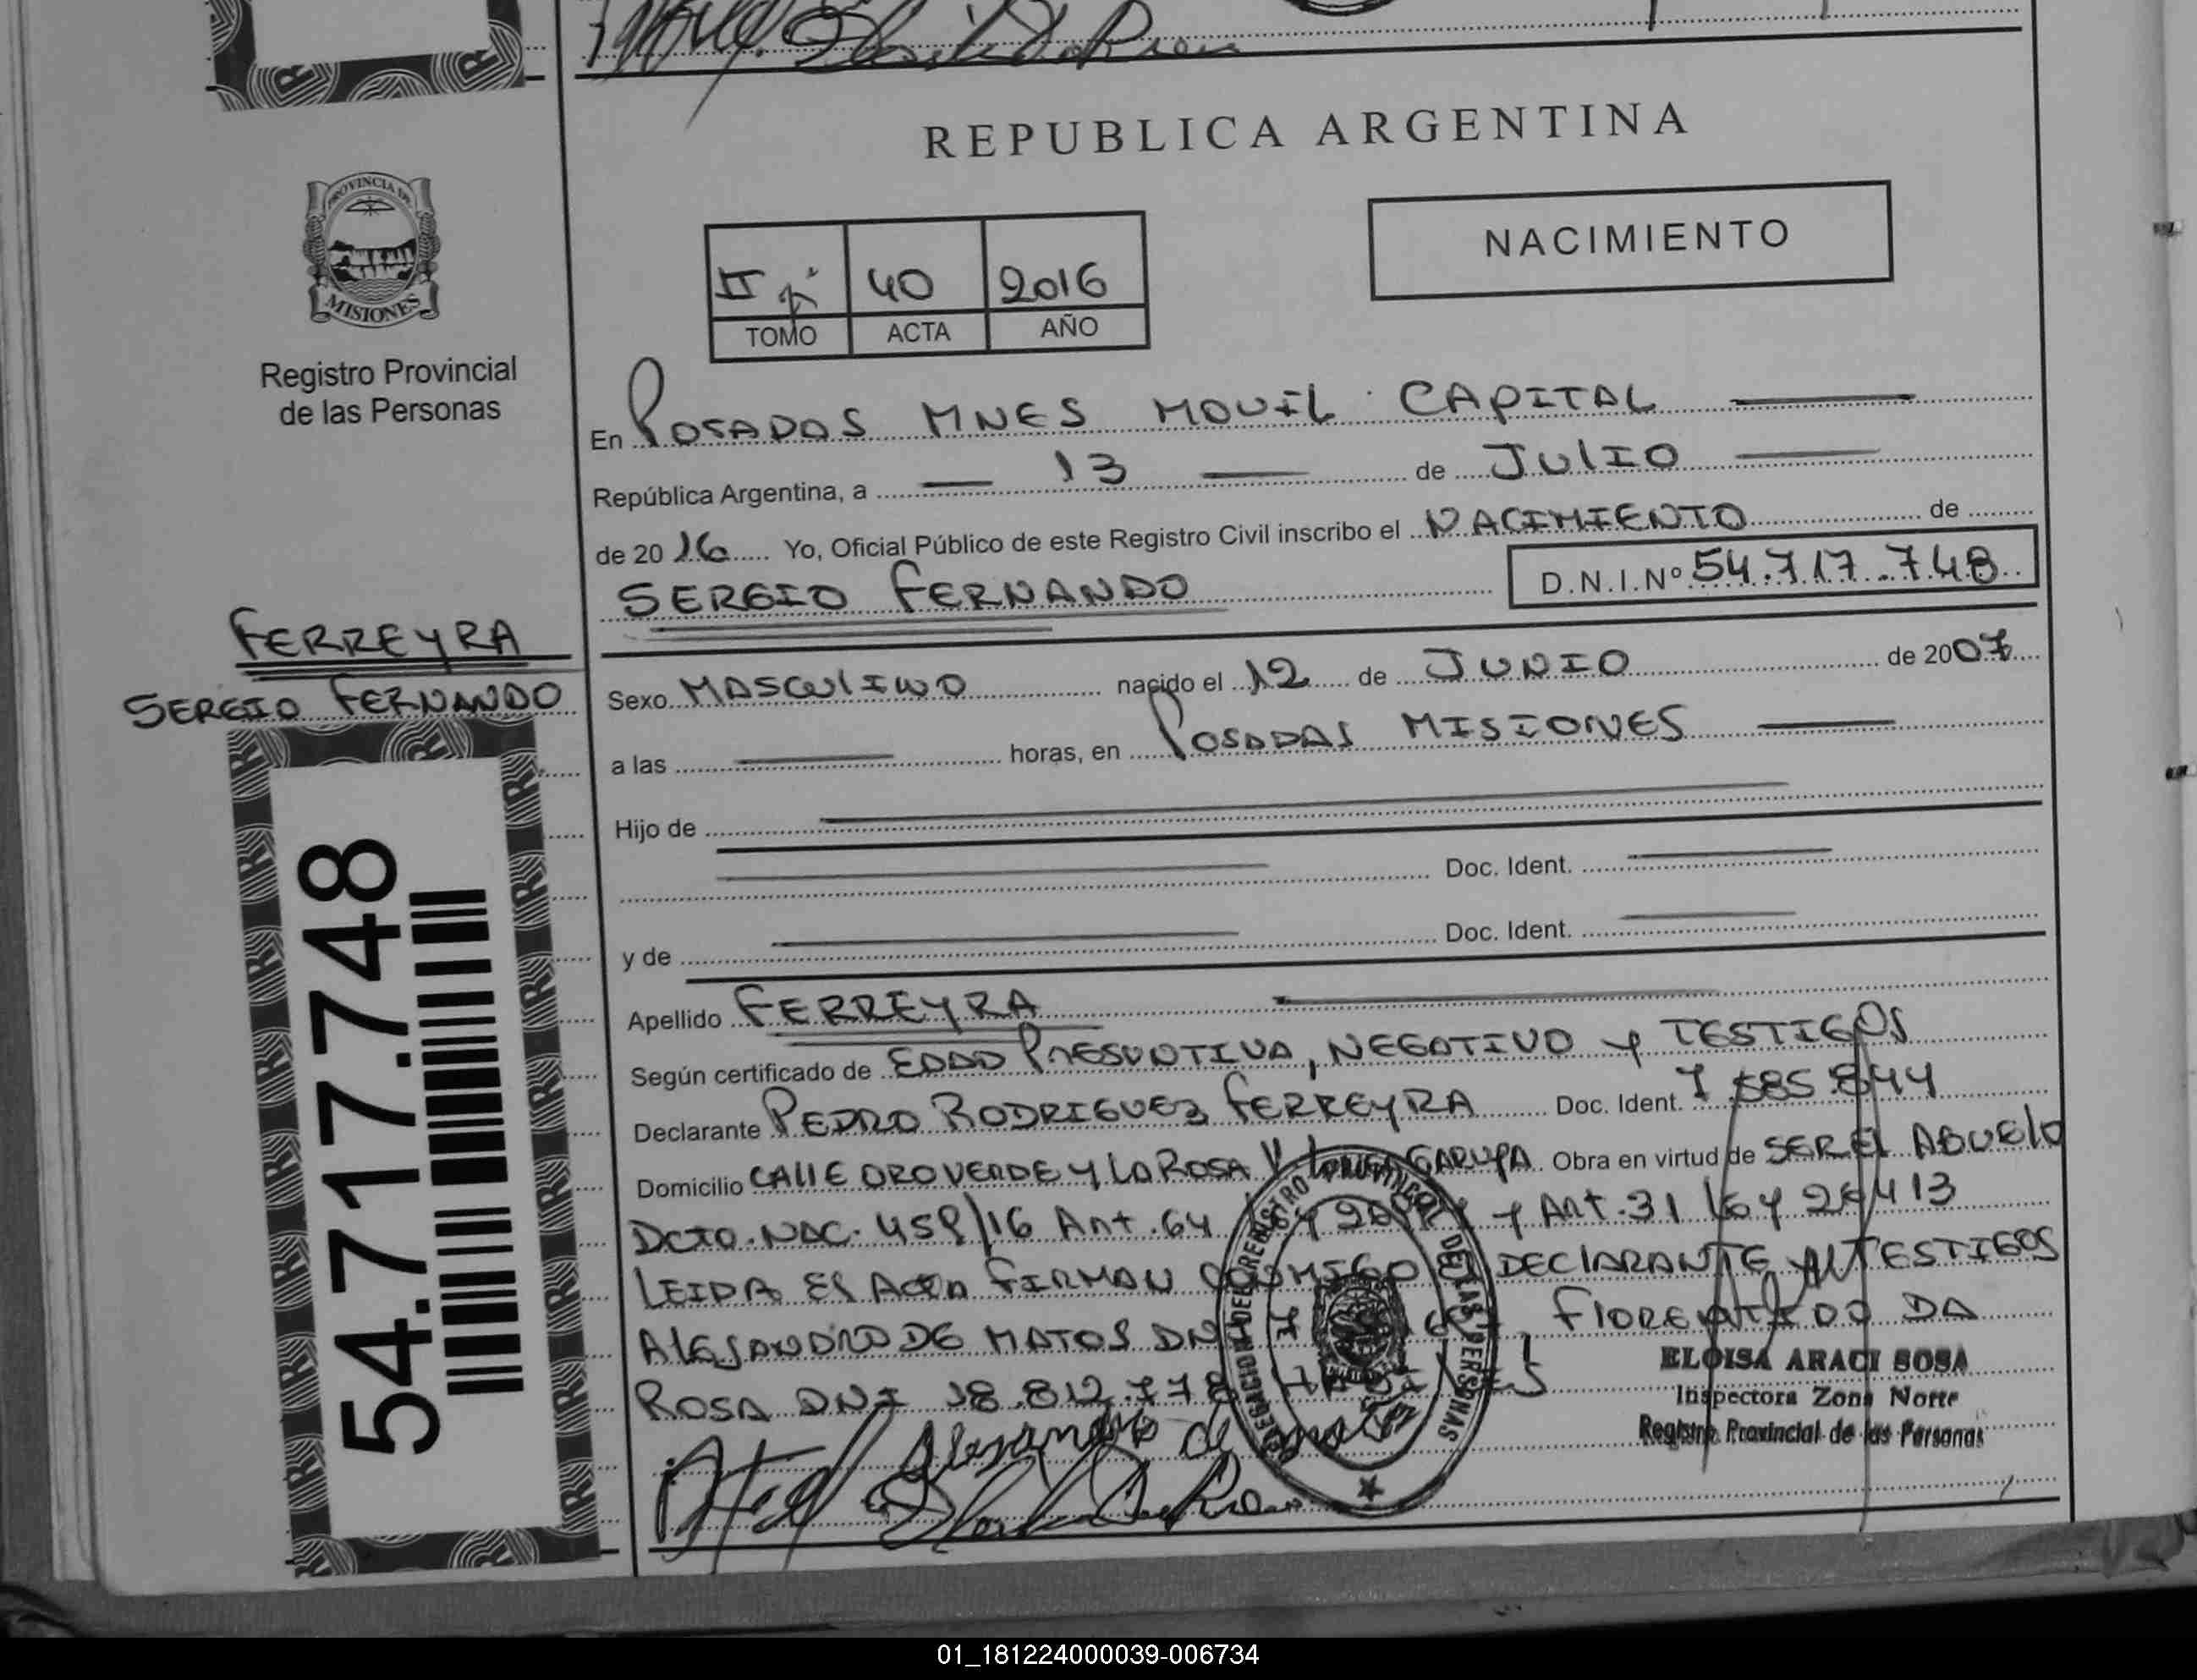 REPUBLICA ARGENTINA
PROVINCIA DE
MISIONES
Registro Provincial
de las Personas
NACIMIENTO
II 40 2016
TOMO ACTA AÑO
En POSADAS MNES MOVIL CAPITAL
República Argentina, a 13 de JULIO
de 2016 Yo, Oficial Público de este Registro Civil inscribo el NACIMIENTO de
SERGIO FERNANDO D.N.I.Nº 54.717.748
FERREYRA
SERGIO FERNANDO
54.717.748
Sexo MASCULINO nacido el 12 de JUNIO de 2007
a las horas, en POSADAS MISIONES
Hijo de
Doc. Ident.
y de Doc. Ident.
Apellido FERREYRA
Según certificado de EDAD PRESUNTIVA, NEGATIVO Y TESTIGOS
Declarante PEDRO RODRIGUEZ FERREYRA Doc. Ident. 7.585.844
Domicilio CALLE ORO VERDE Y LA ROSA GARUPA Obra en virtud de SER EL ABUELO
DCTO. NAC. 459/16 Art. 64 Y Art. 31 16 Y 26413
LEIDA EL ACTA FIRMAN CONMIGO EL DECLARANTE TESTIGOS
ALEJANDRO DE MATOS DNI DA
ROSA DNI 18.812.778
ELOISA ARACI SOSA
Inspectora Zona Norte
Registro Provincial de las Personas
Alejandro de
01_181224000039-006734